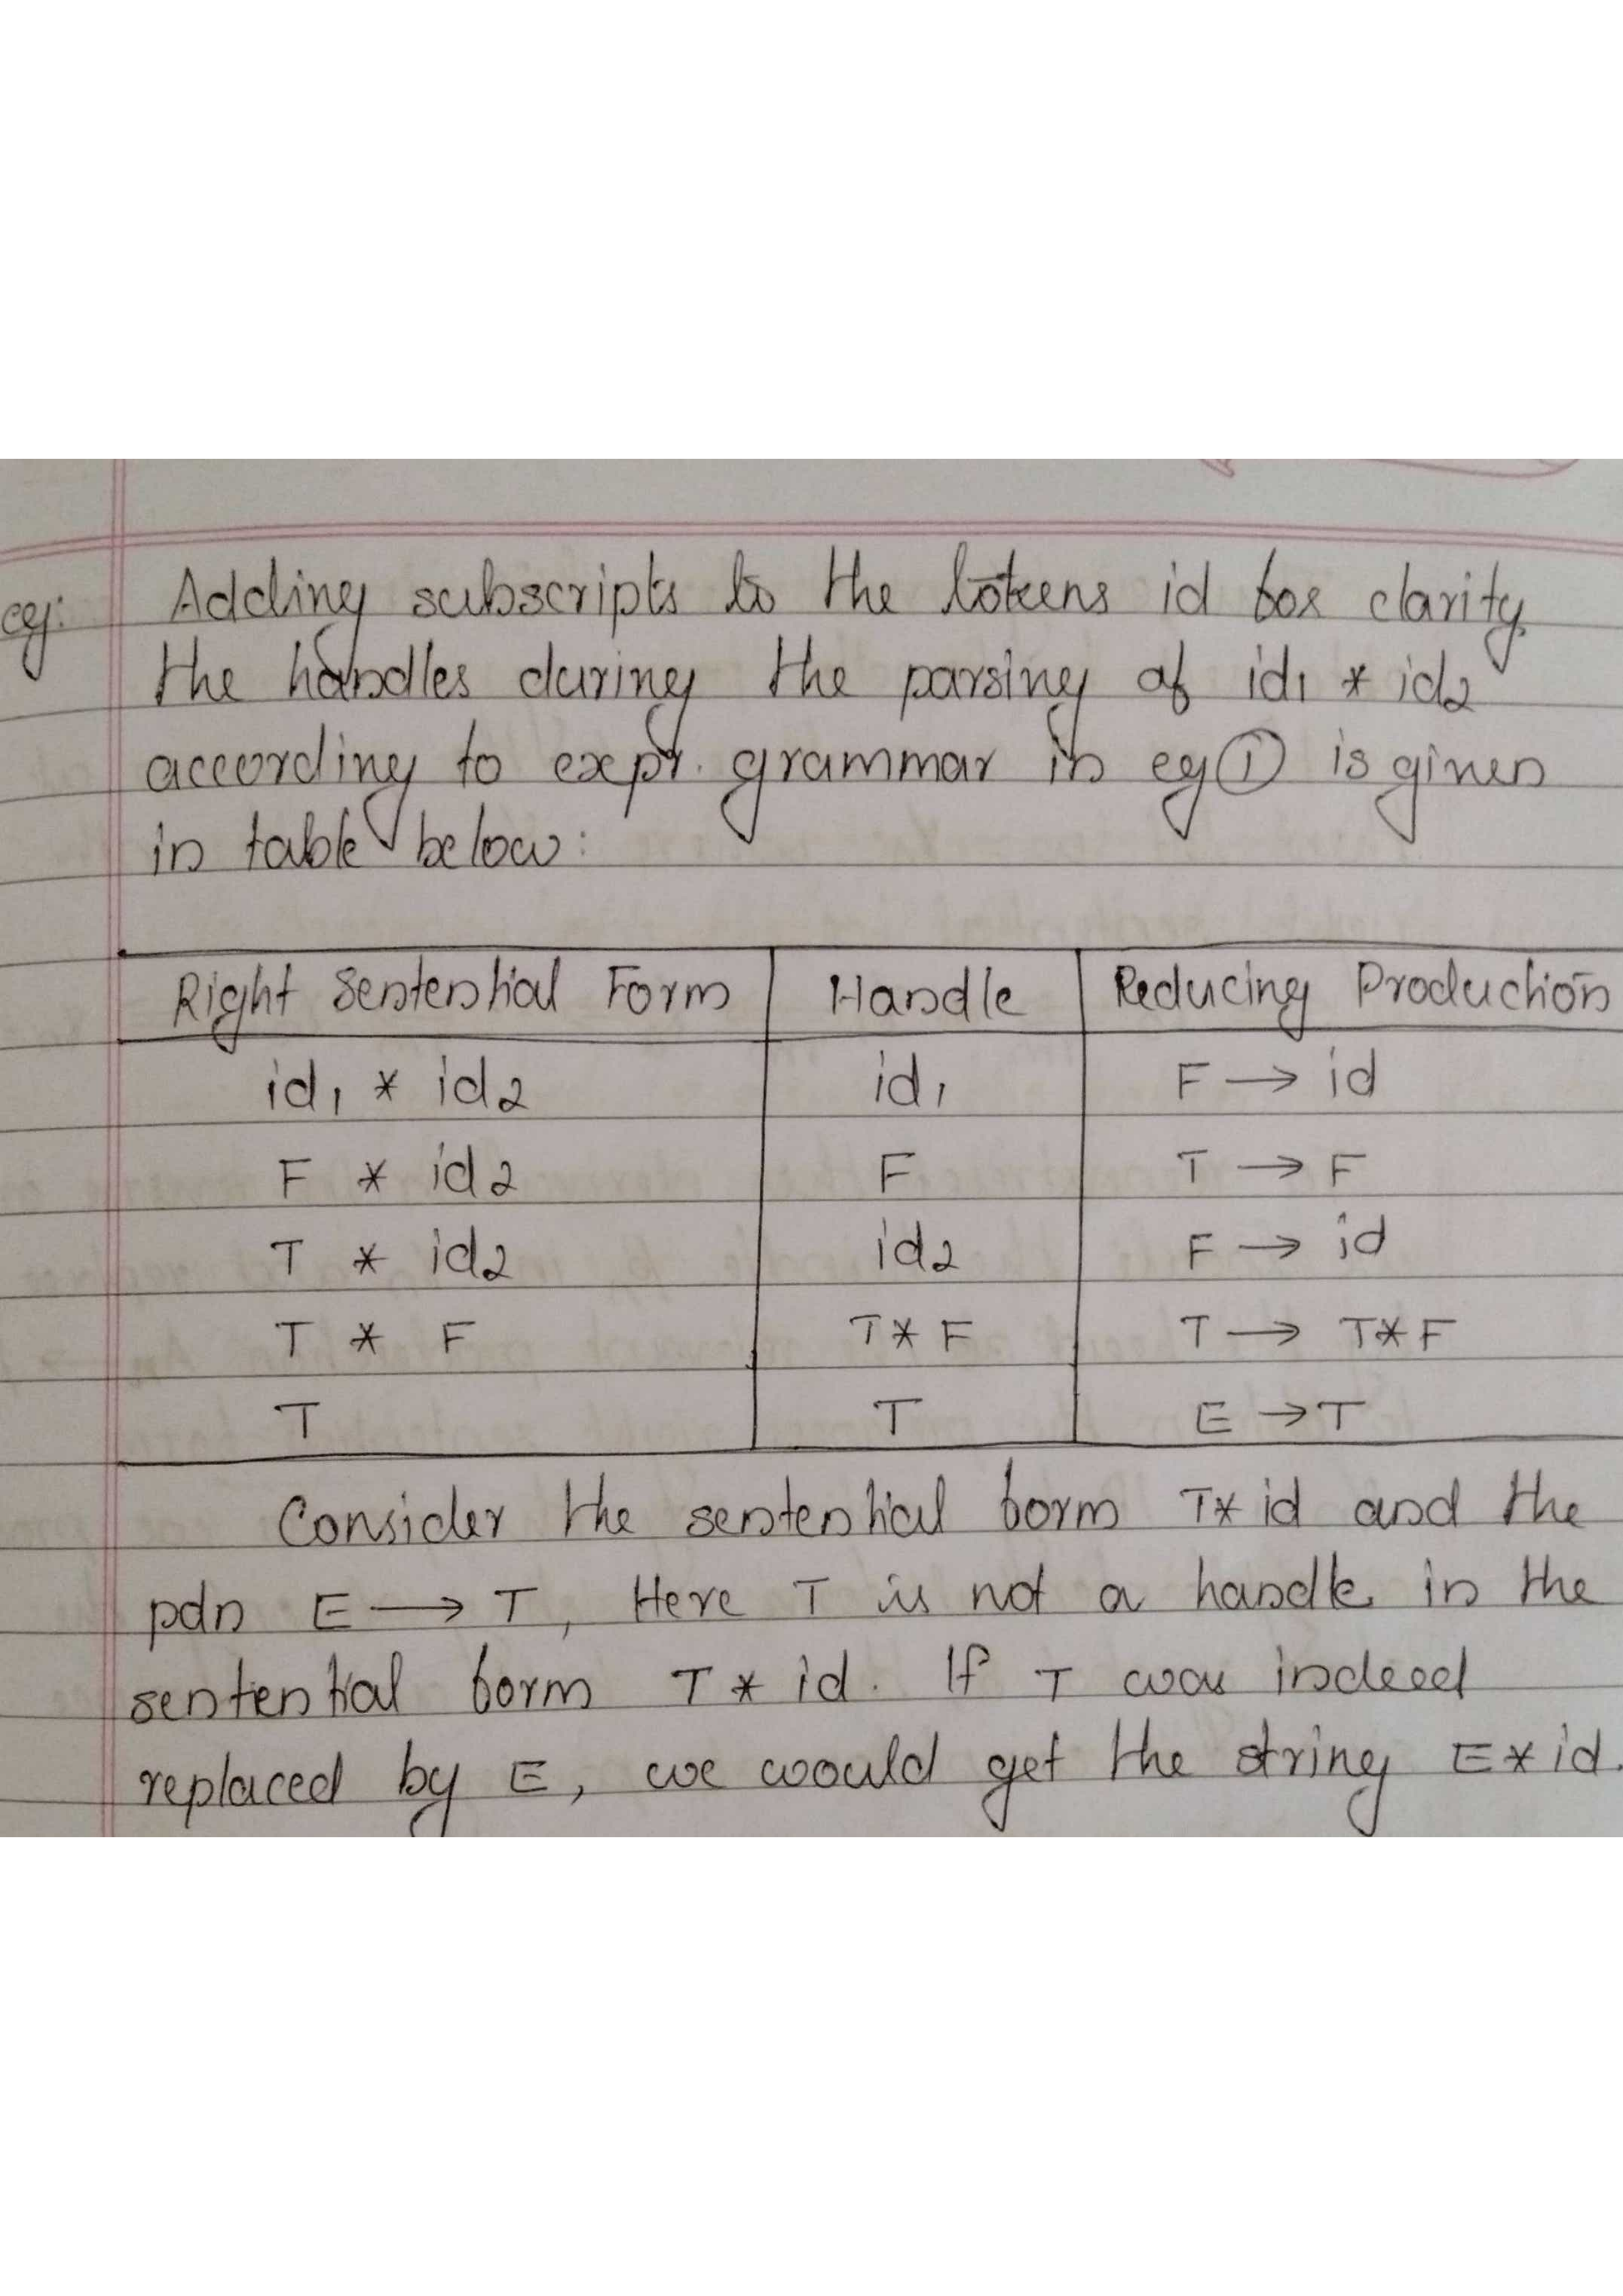 eg: Adding subscripts to the tokens id for clarity,
the handles during the parsing of id1 * id2
according to expr. grammar in eg ① is given
in table below:
Right Sentential Form | Handle | Reducing Production
id1 * id2 | id1 | F → id
F * id2 | F | T → F
T * id2 | id2 | F → id
T * F | T * F | T → T * F
T | T | E → T
Consider the sentential form T * id and the
pdn E → T, Here T is not a handle in the
sentential form T * id. If T was indeed
replaced by E, we would get the string E * id.